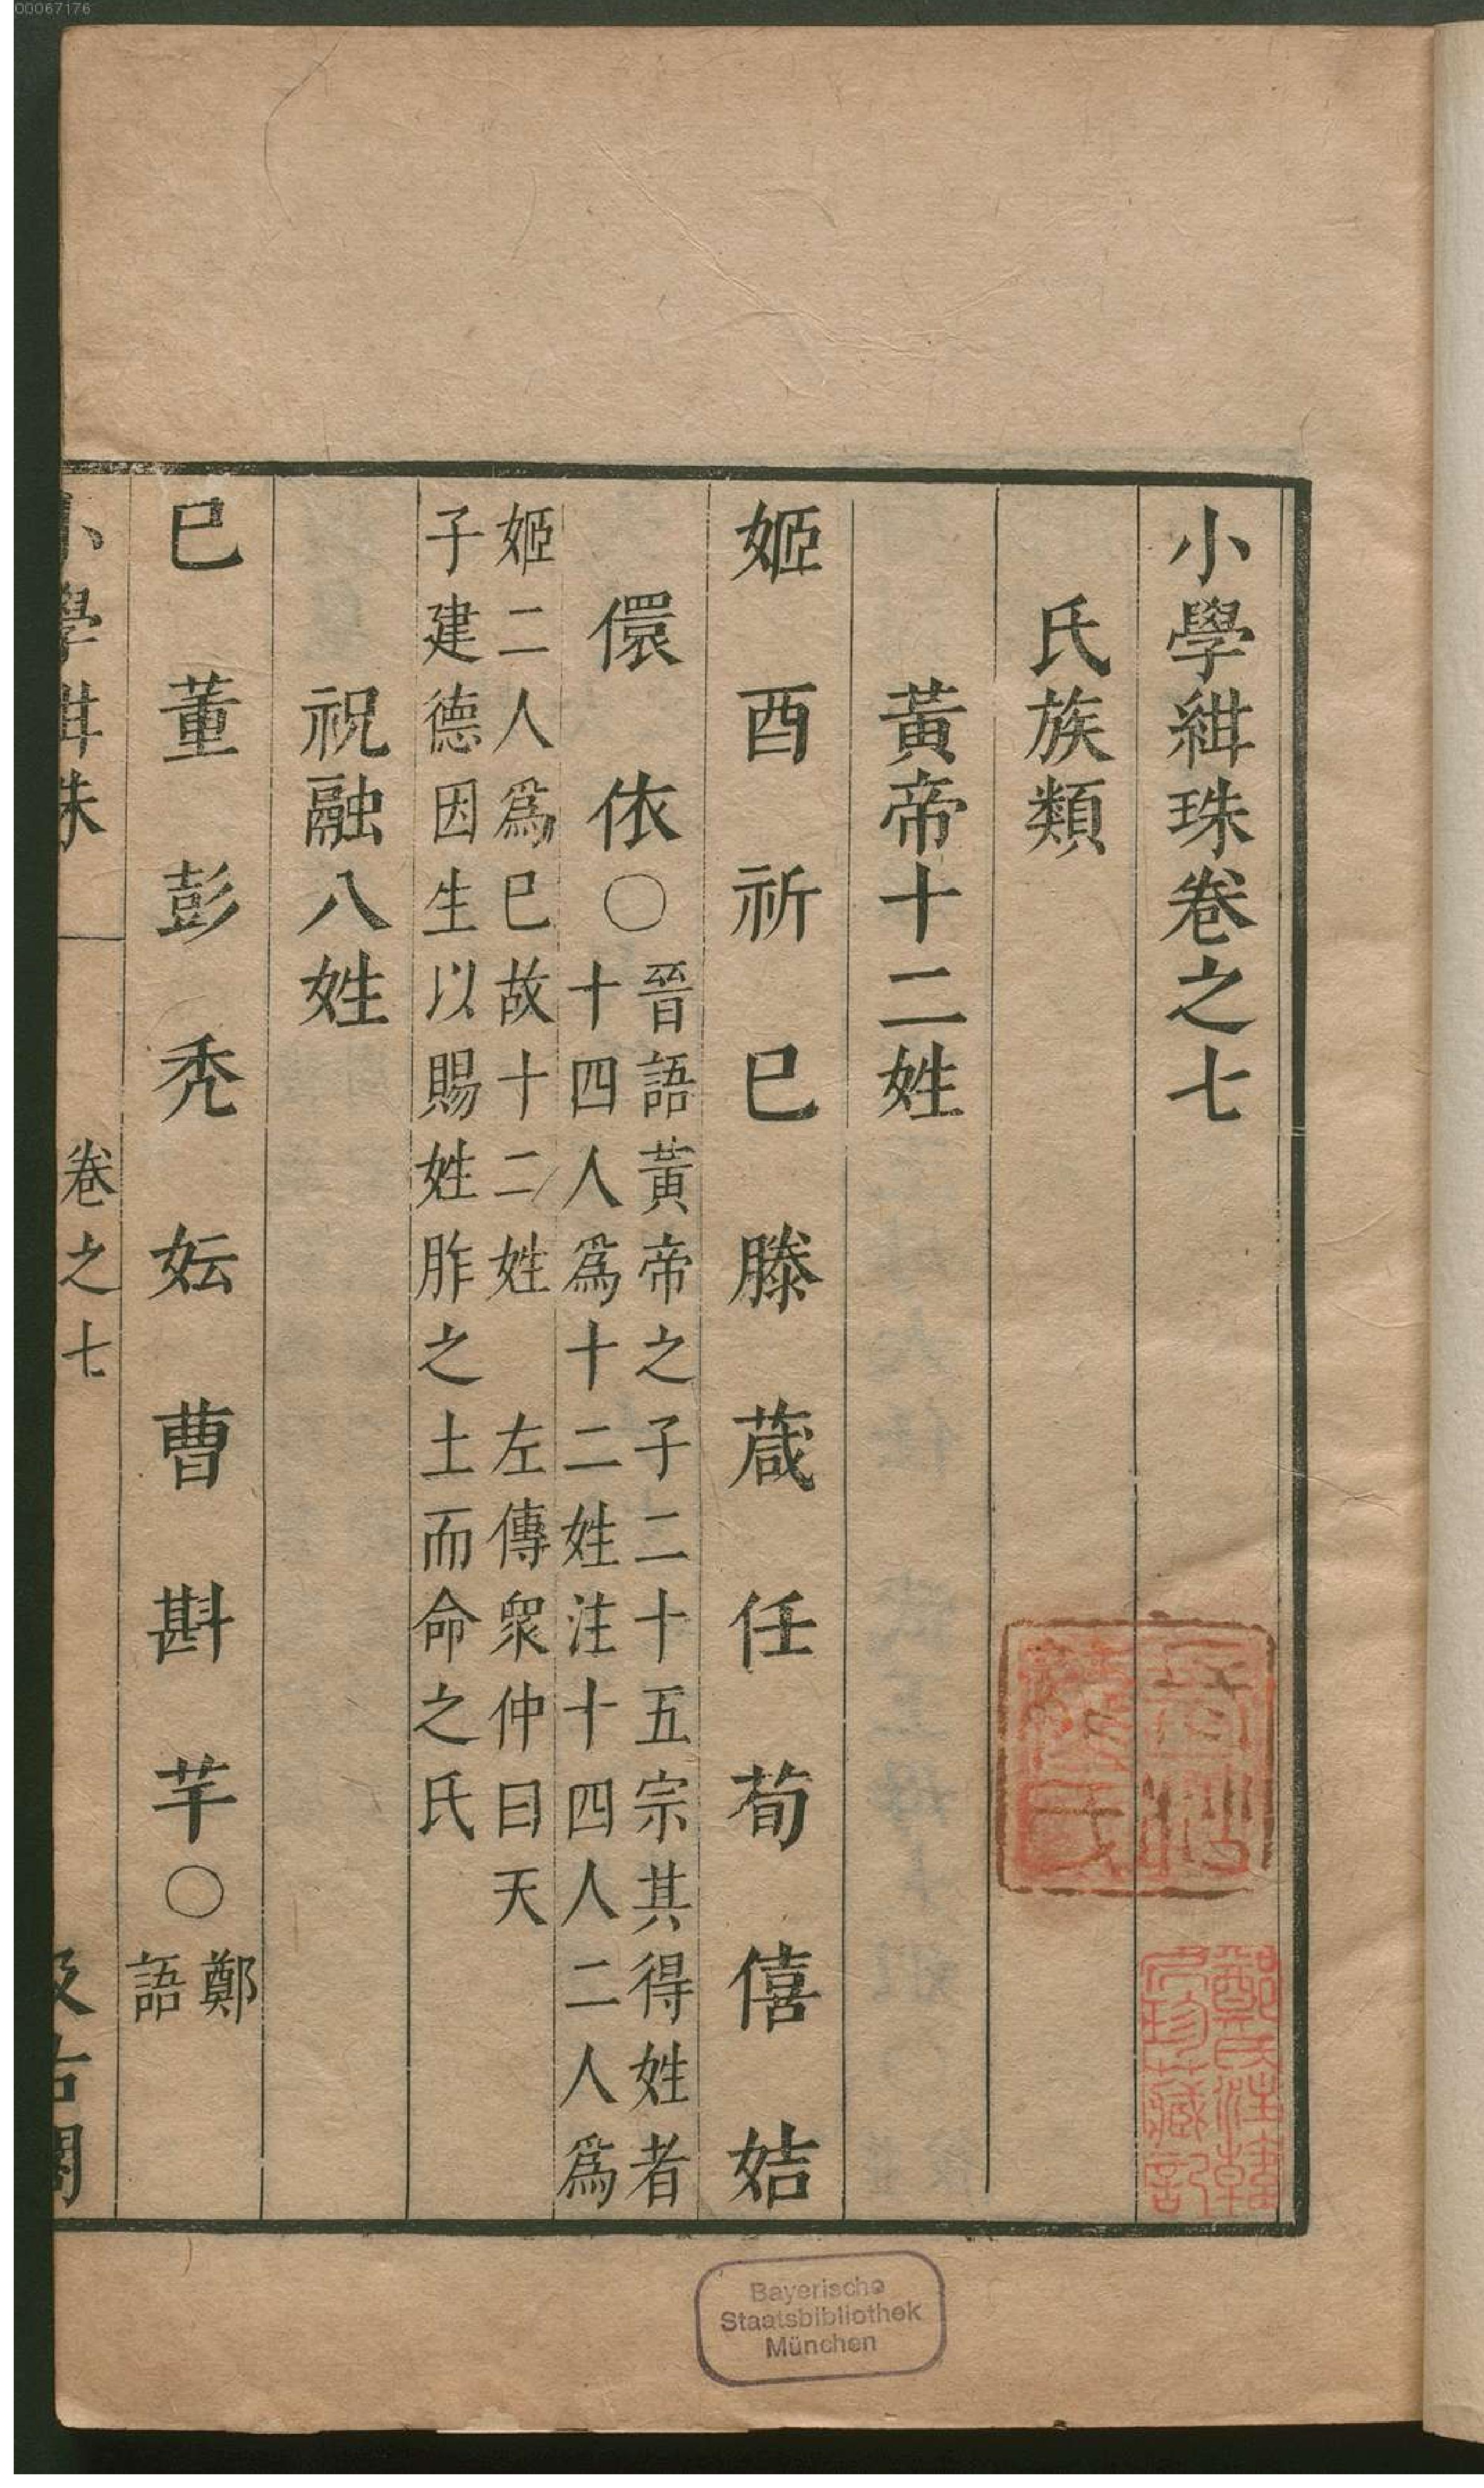 00067176
小學紺珠卷之七
氏族類
黃帝十二姓
姬 酉 祈 巳 滕 葴 任 荀 僖 姞
儇 依 ○ 晉語黃帝之子二十五宗其得姓者
十四人爲十二姓注十四人二人爲
姬二人爲巳故十二姓 左傳衆仲曰天
子建德因生以賜姓胙之土而命之氏
祝融八姓
巳 董 彭 禿 妘 曹 斟 芊 ○ 鄭
語
小學紺珠 卷之七 汲古閣
鄭氏注韓
尻珍藏記
Bayerische
Staatsbibliothek
München